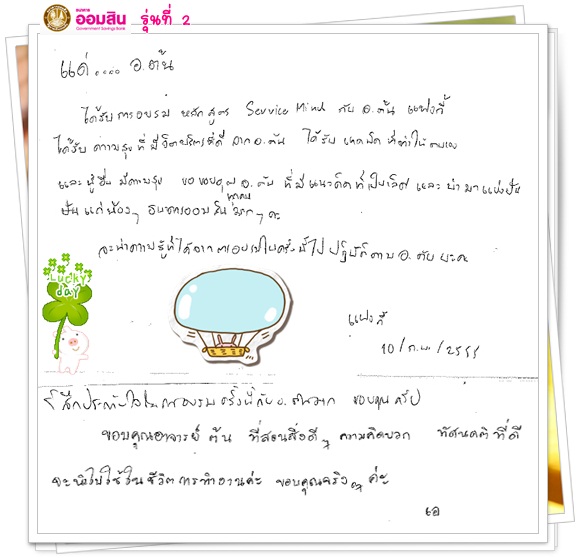 ธนาคาร
ออมสิน
Government Savings Bank
รุ่นที่ 2
แด่.... อ.ต้น
ได้รับการอบรม หลักสูตร Service Mind กับ อ.ต้น แฟงกี้
ได้รับ ความสุข ที่มี จาก อ.ต้น ได้รับ เทคนิค ที่ทำให้ตนเอง
และ ผู้อื่น มีความสุข ขอขอบคุณ อ.ต้น ที่มีแนวคิดที่เป็นเลิศ และ นำมาแบ่งปัน
ทุกคน
ปันแก่น้องๆ ธนาคารออมสิน มากๆ คะ
จะนำความรู้ที่ได้จากการอบรมในครั้งนี้ไป ปฏิบัติตาม อ.ต้น นะคะ
Lucky
day
แฟงกี้
10/ก.พ./2555
รู้สึกประทับใจในการอบรมครั้งนี้กับ อ.ต้นมาก ขอบคุณครับ
ขอบคุณอาจารย์ ต้น ที่สอนสิ่งดีๆ ความคิดบวก ทัศนคติ ที่ดี
จะนำไปใช้ใน ชีวิต การทำงานค่ะ ขอบคุณจริงๆ ค่ะ
เอ